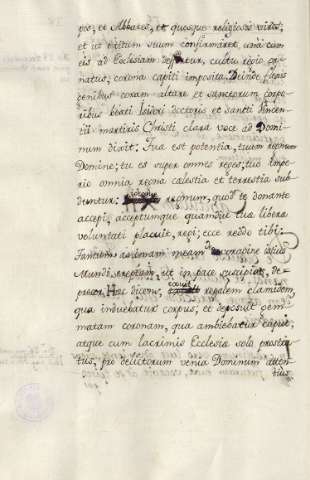 pos, et Abbates, et quosque religiosos viros,
et ut votum suum confirmaret, una cum
eis ad Ecclesiam deffertur, cultu regio or-
natus; corona capiti imposita. Deinde flexis
genibus coram altare et sanctorum corpo-
ribus beati Isidori doctoris et sancti Vincen-
tii martiris Christi, clara voce ad Domi-
num dixit: Tua est potentia, tuum regnum
Domine; tu es super omnes reges; tuo impe-
rio omnia regna cælestia et terrestia sub-
duntur; regnum, quod te donante
accepi, acceptumque quamdiu tuæ liberæ
voluntati placuit, regi; ecce reddo tibi:
Tantum animam meam de voragine istius
Mundi ereptam, ut in pace suscipias, de-
precor. Hæc dicens, exuit regalem clamidem
qua induebatur corpus; et deposuit gem-
matam coronam, qua ambiebatur caput,
atque cum lacrimis Ecclesiæ solo prostra-
tus, pro delictorum venia Dominum atten-
tius